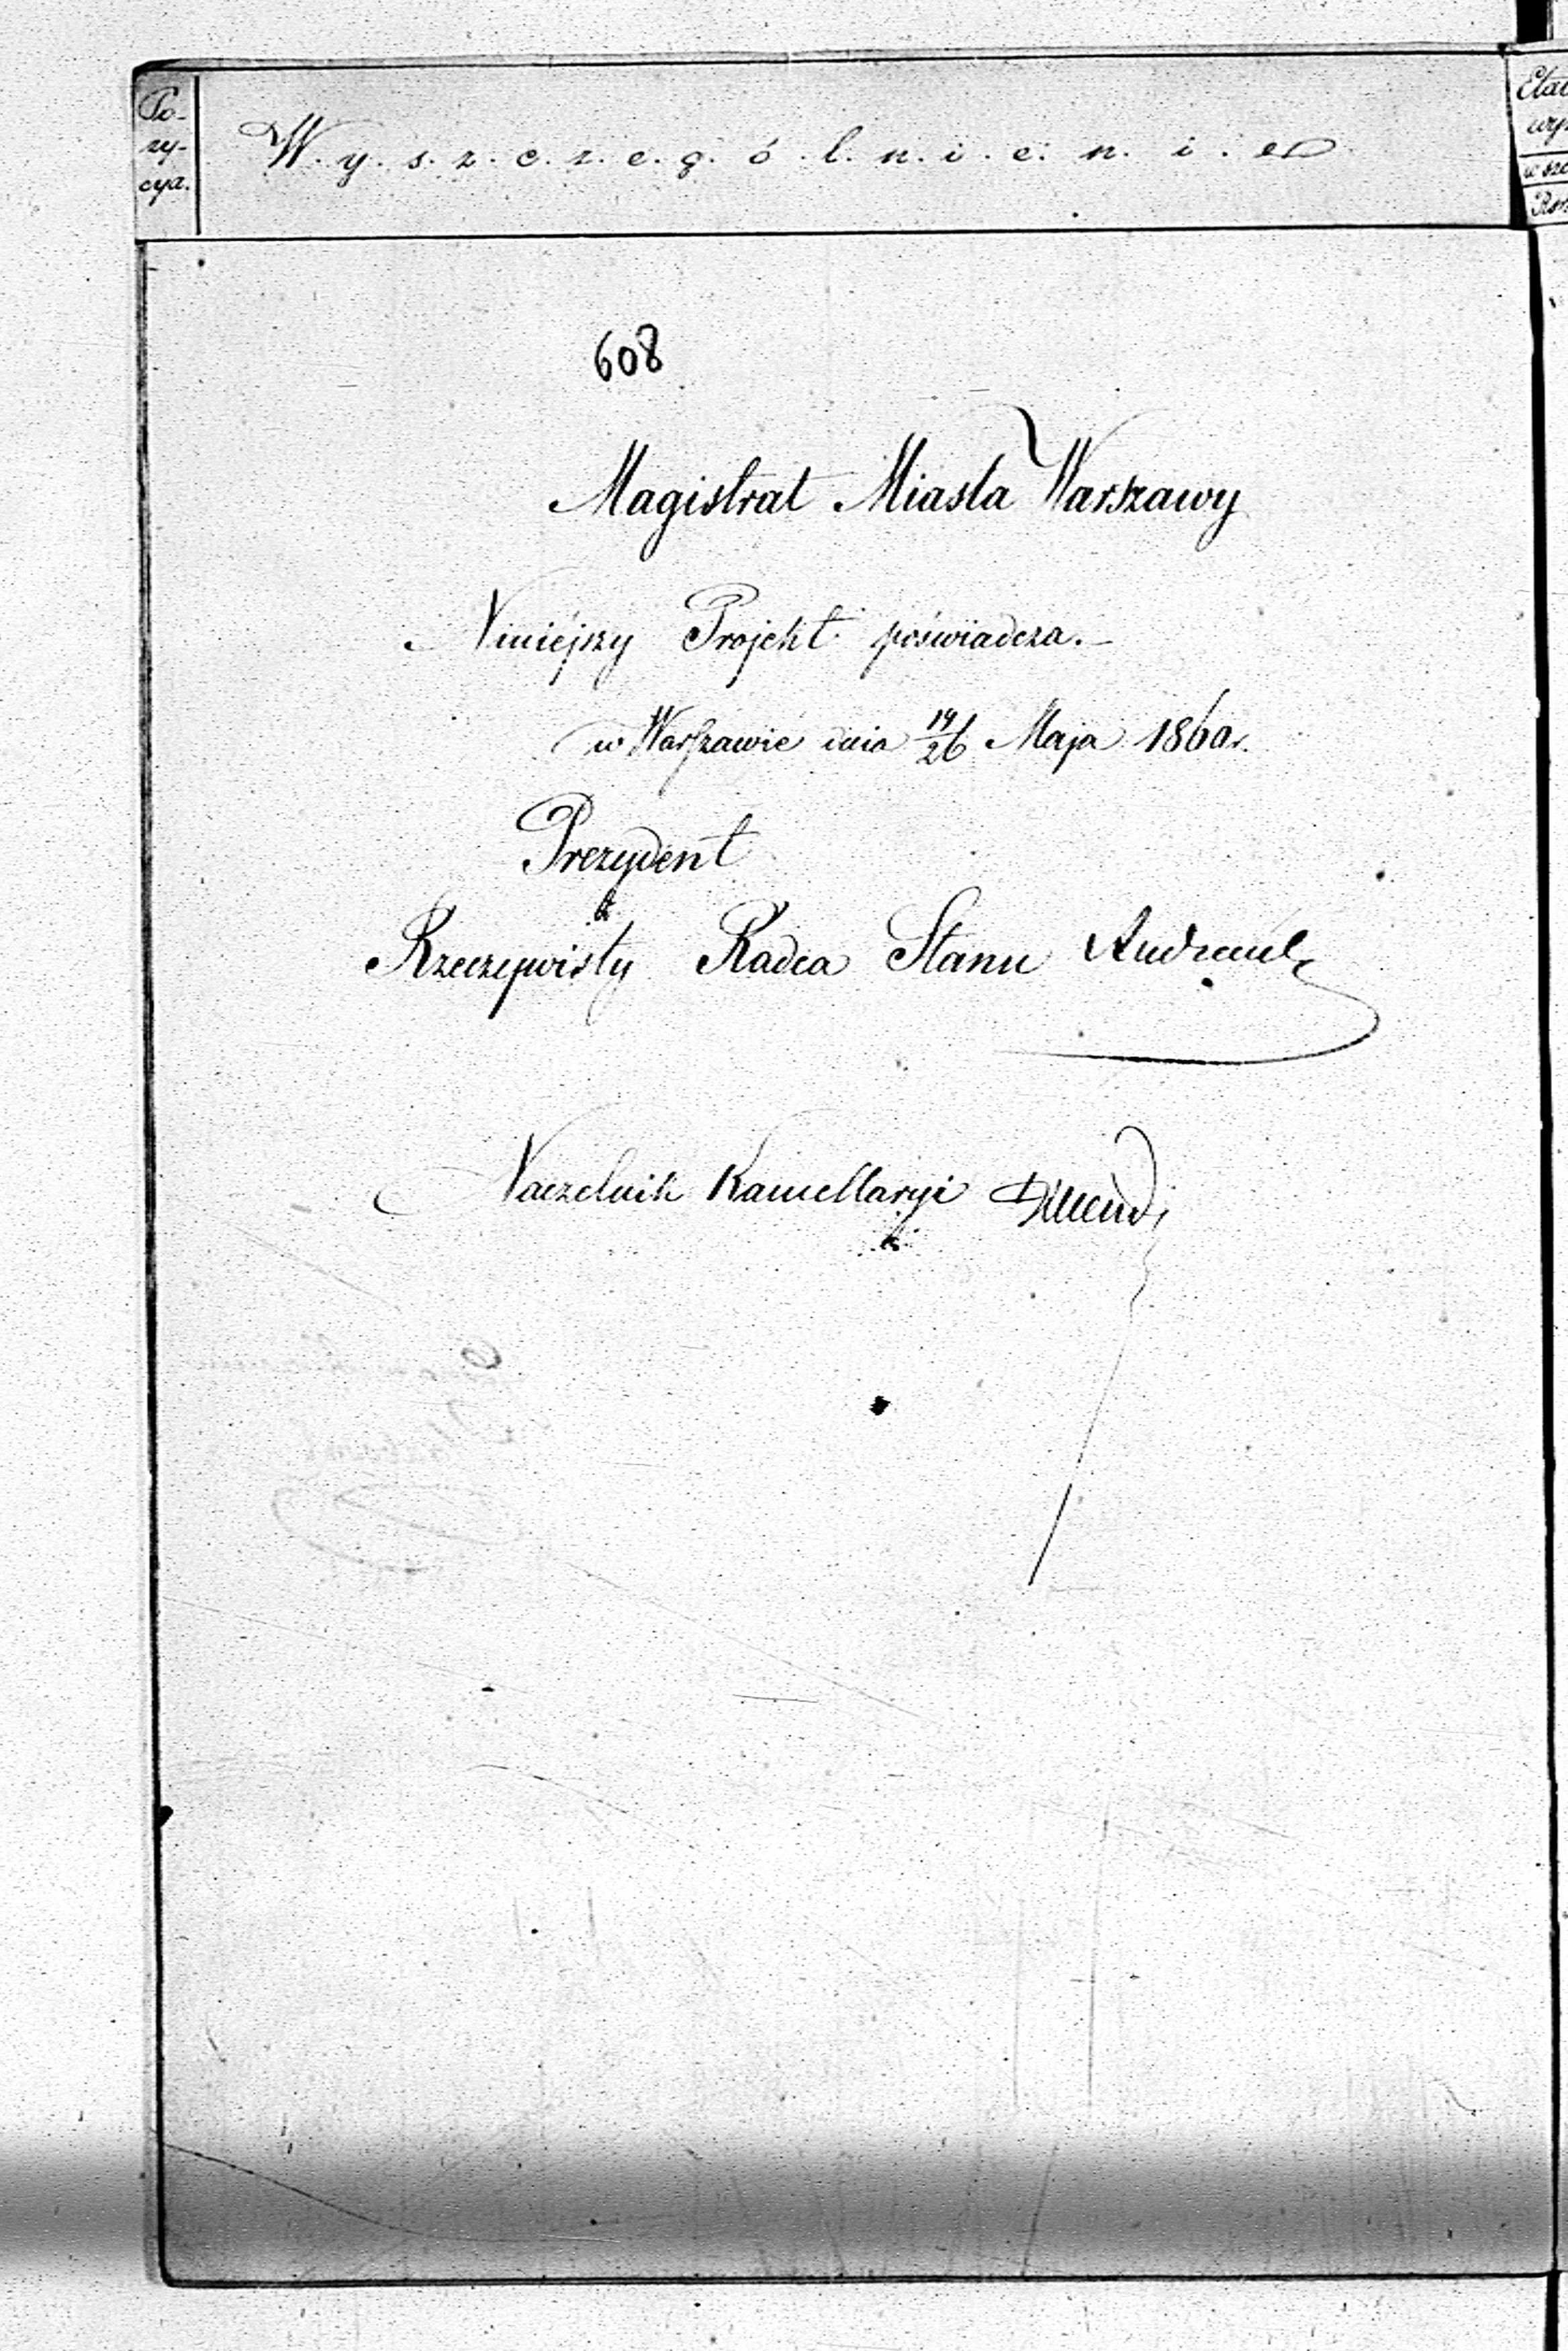 Po-
zy-
cya.
W.y.s.z.c.z.e.g.ó.l.n.i.e.n.i.e
608
Magistrat Miasta Warszawy
Niniéjszy Projekt poświadcza.—
w Warszawie dnia 14/26 Maja 1860 r.
Prezydent
Rzeczywisty Radca Stanu Andrault
Naczelnik Kancellaryi